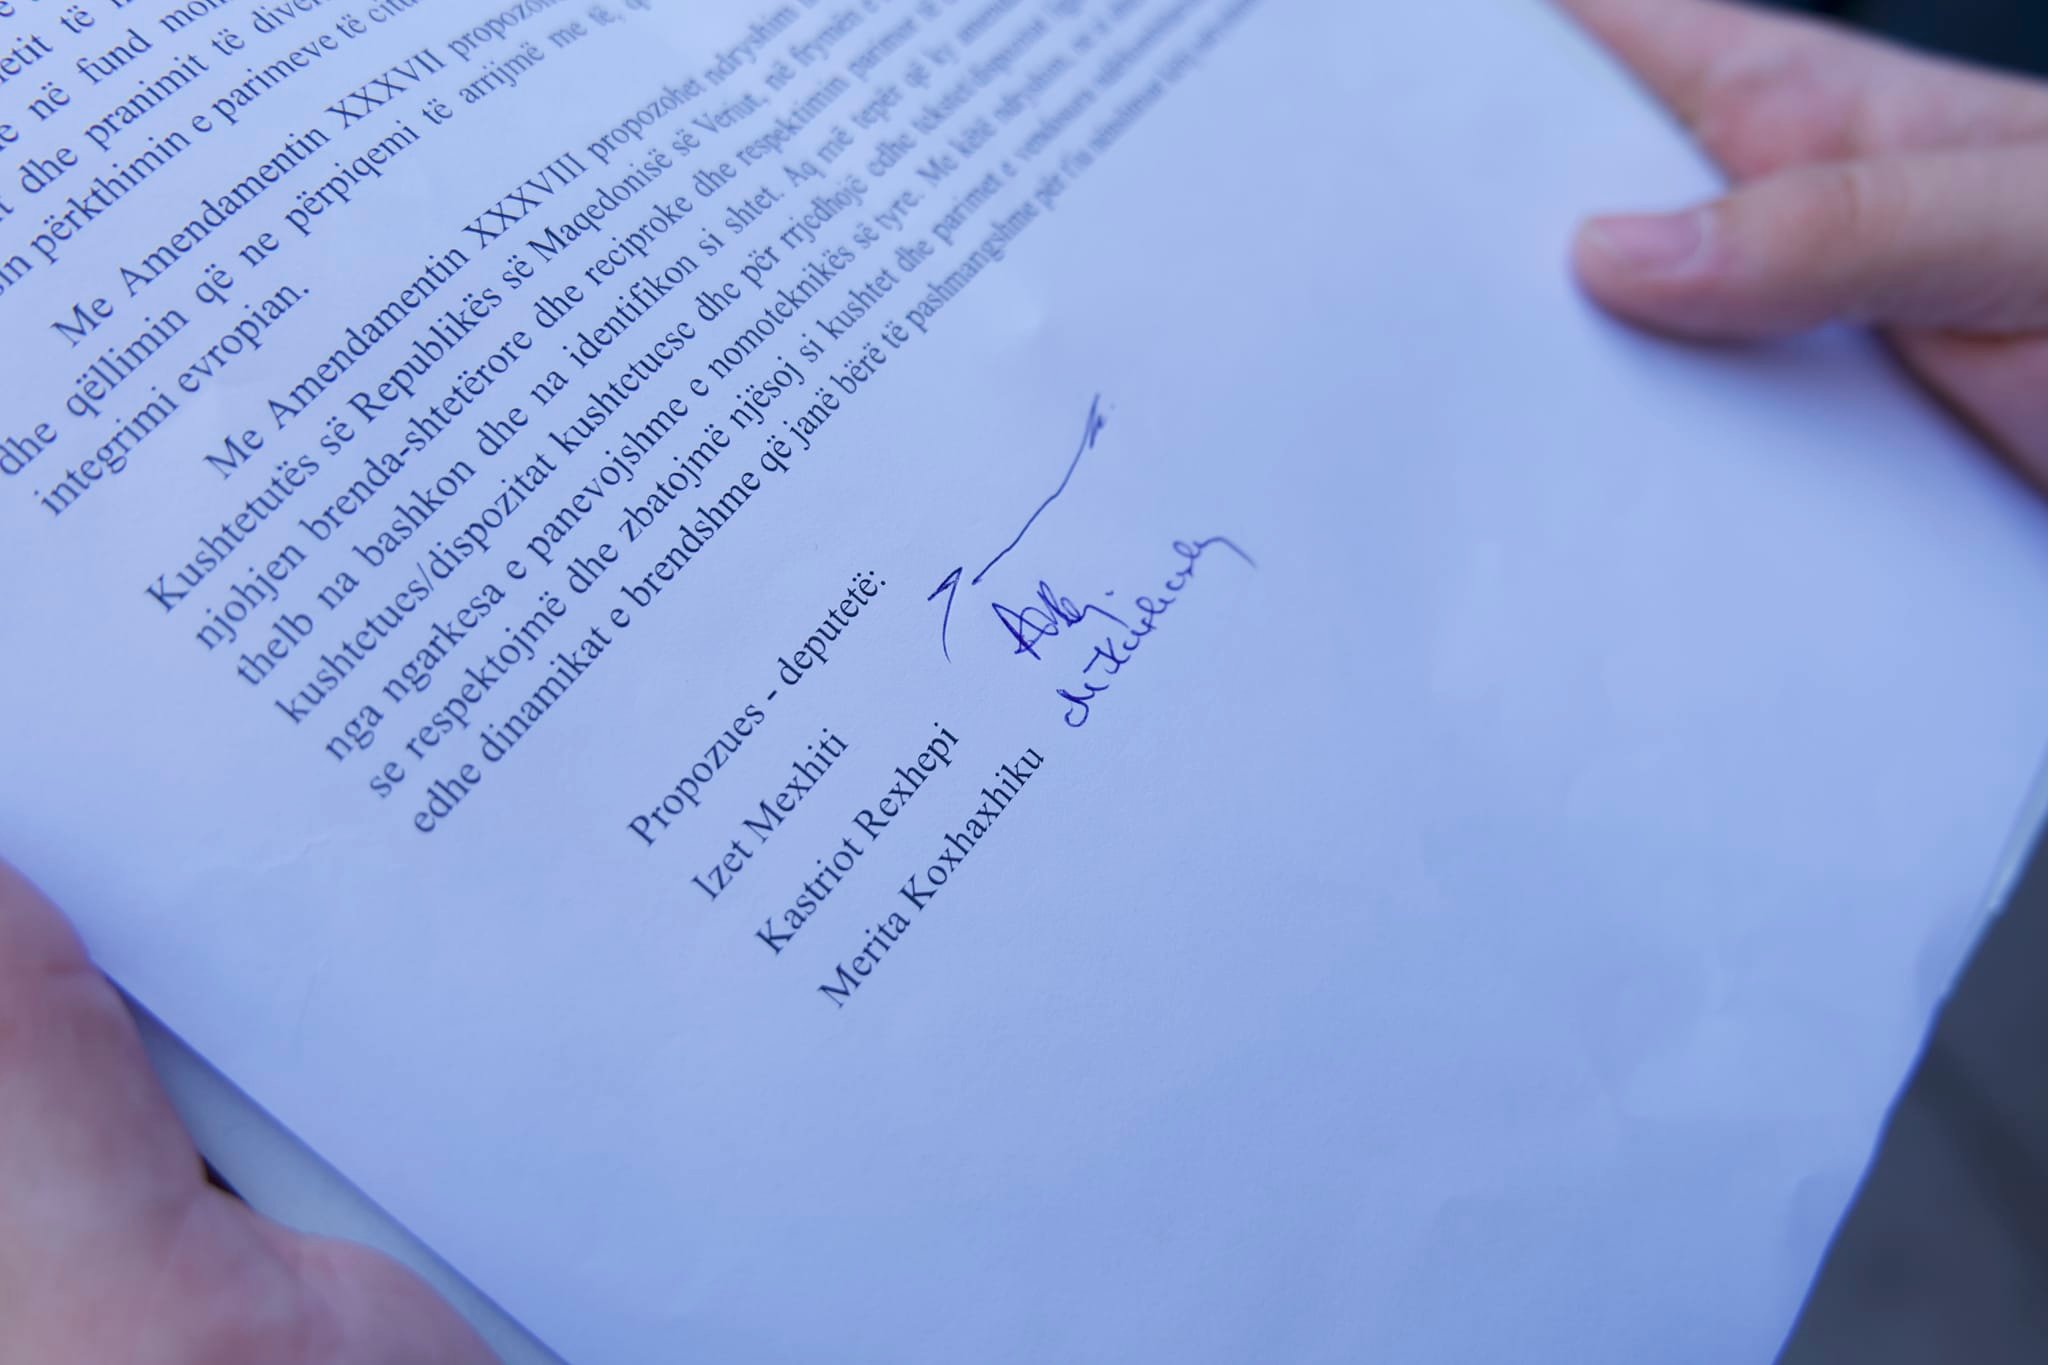 në fund
dhe pranimit të
përkthimin e parimeve të
Me Amendamentin XXXVII
dhe qëllimin që ne përpiqemi të arrijmë me të,
integrimi evropian.
Me Amendamentin XXXVIII propozohet ndryshim
Kushtetutës së Republikës së Maqedonisë së Veriut, në frymën e
njohjen brenda-shtetërore dhe reciproke dhe respektimin parimor të
thelb na bashkon dhe na identifikon si shtet. Aq më tepër që ky
kushtetues/dispozitat kushtetuese dhe për rrjedhojë edhe tekstet
nga ngarkesa e panevojshme e nomoteknikës së tyre. Me këtë ndryshim,
se respektojmë dhe zbatojmë njësoj si kushtet dhe parimet e
edhe dinamikat e brendshme që janë bërë të pashmangshme për
Propozues - deputetë:
Izet Mexhiti
Kastriot Rexhepi
Merita Koxhaxhiku